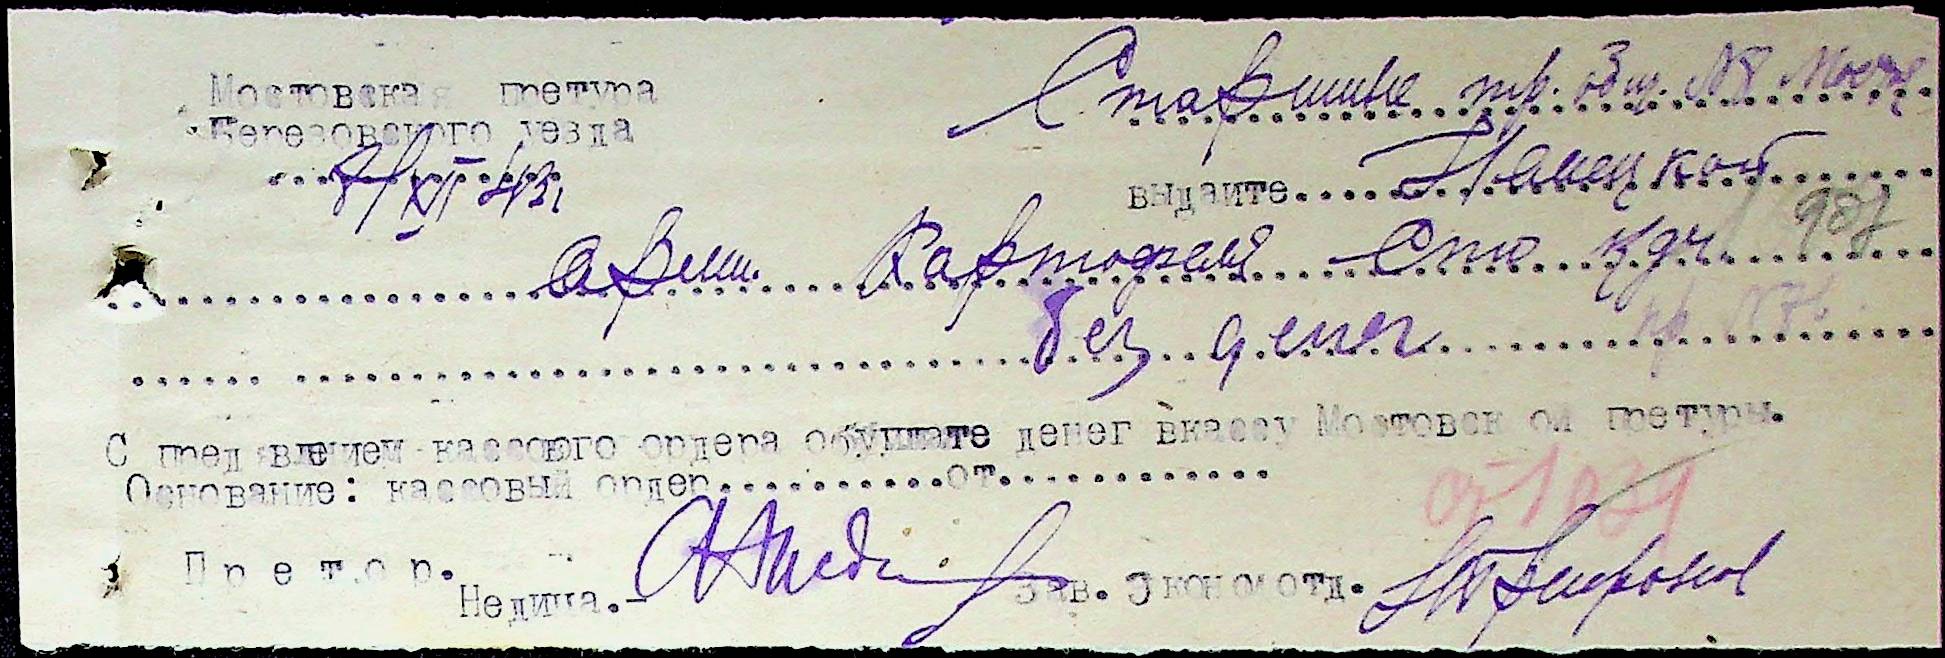 Мостовская претура
Березовского уезда
8/XI 43г
Старшине тр. общ. №7
выдайте
армии Картофеля Сто
987
без денег
С пред явлением кассового ордера обуплате денег вкассу Мостовск ой претуры.
Основание: кассовый ордер...........от.............
Претор.
Недича.-
Зав. Эконом отд.